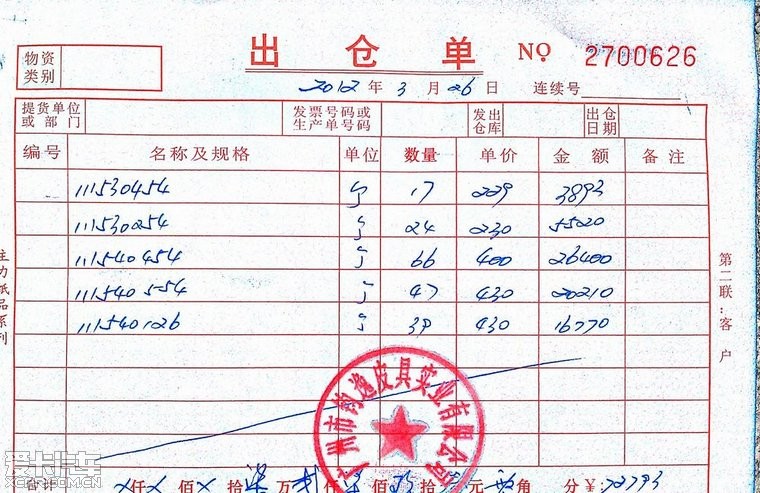 物资类别
出仓单 NO. 2700626
2012 年 3 月 26 日 连续号
提货单位或部门 发票号码或生产单号码 发出仓库 出仓日期
编号 名称及规格 单位 数量 单价 金额 备注
111530454 个 17 229 3893
111530254 个 24 230 5520
111540454 个 66 400 26400
111540554 个 47 430 20210
111540126 个 39 430 16770
合计 仟 佰 拾柒万贰仟柒佰玖拾 元 角 分 ¥: 72793
广州市钧逸皮具实业有限公司
第二联：客户
主力纸品系列
爱卡汽车
XCAR.COM.CN